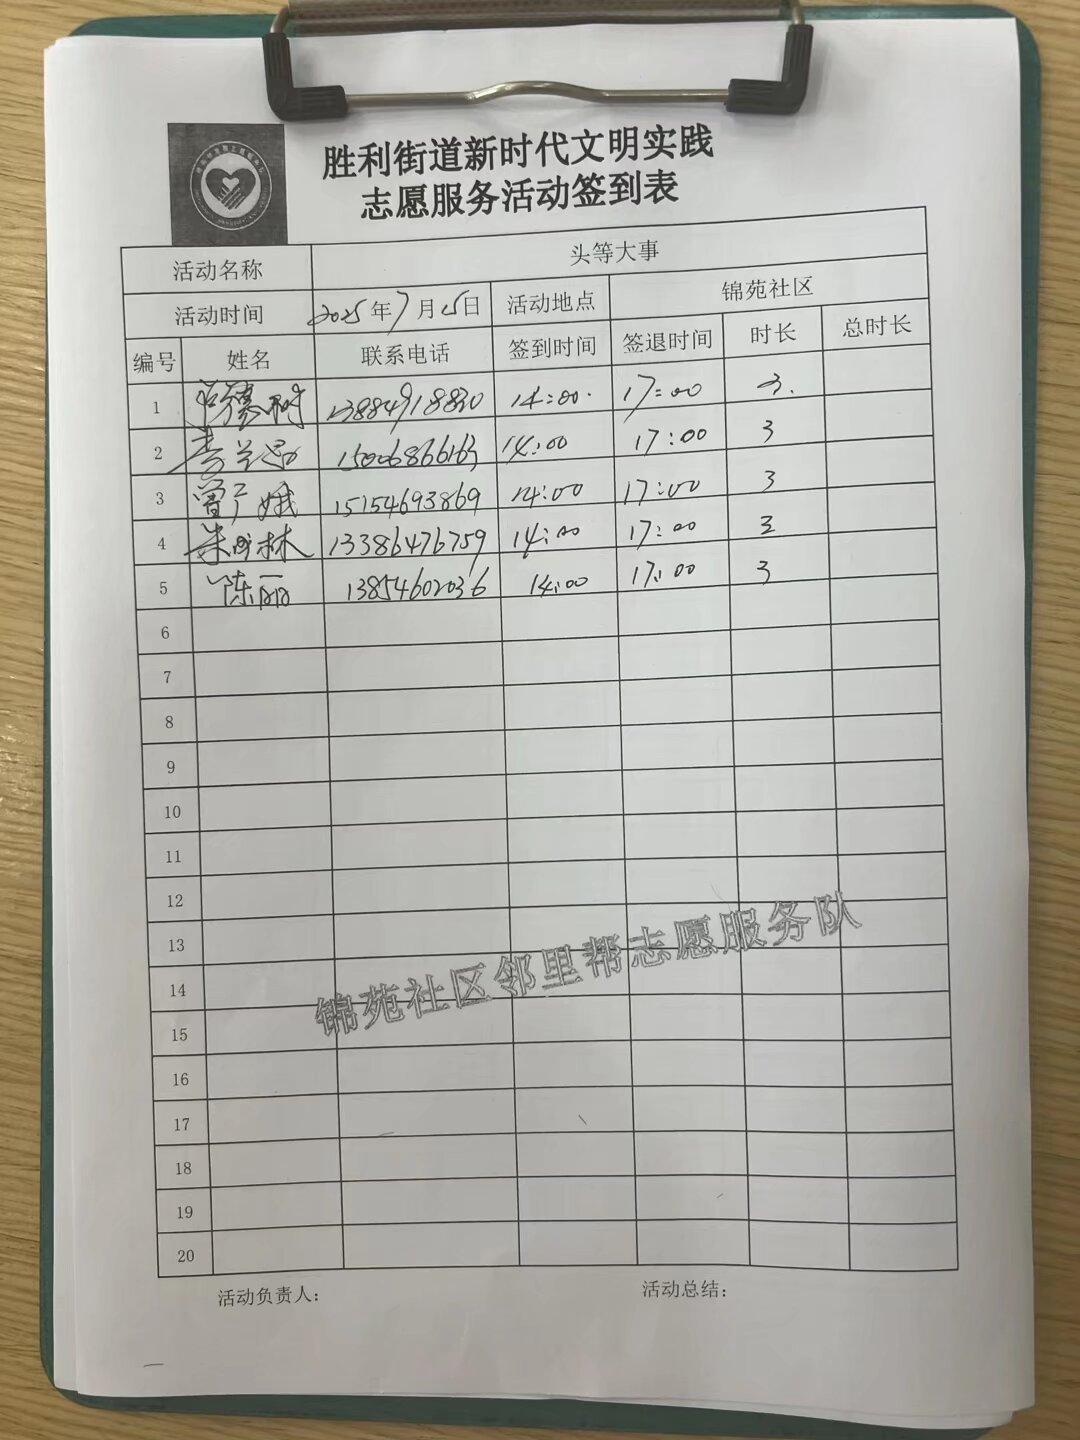 胜利街道新时代文明实践
志愿服务活动签到表
活动名称 头等大事
活动时间 2025年7月25日 活动地点 锦苑社区
编号 姓名 联系电话 签到时间 签退时间 时长 总时长
1 13884918830 14:00 17:00 3
2 李兰 15006866163 14:00 17:00 3
3 曾广娥 15154693869 14:00 17:00 3
4 朱 林 13386476759 14:00 17:00 3
5 陈丽 13854602036 14:00 17:00 3
6
7
8
9
10
11
12
13
锦苑社区邻里帮志愿服务队
14
15
16
17
18
19
20
活动负责人: 活动总结: